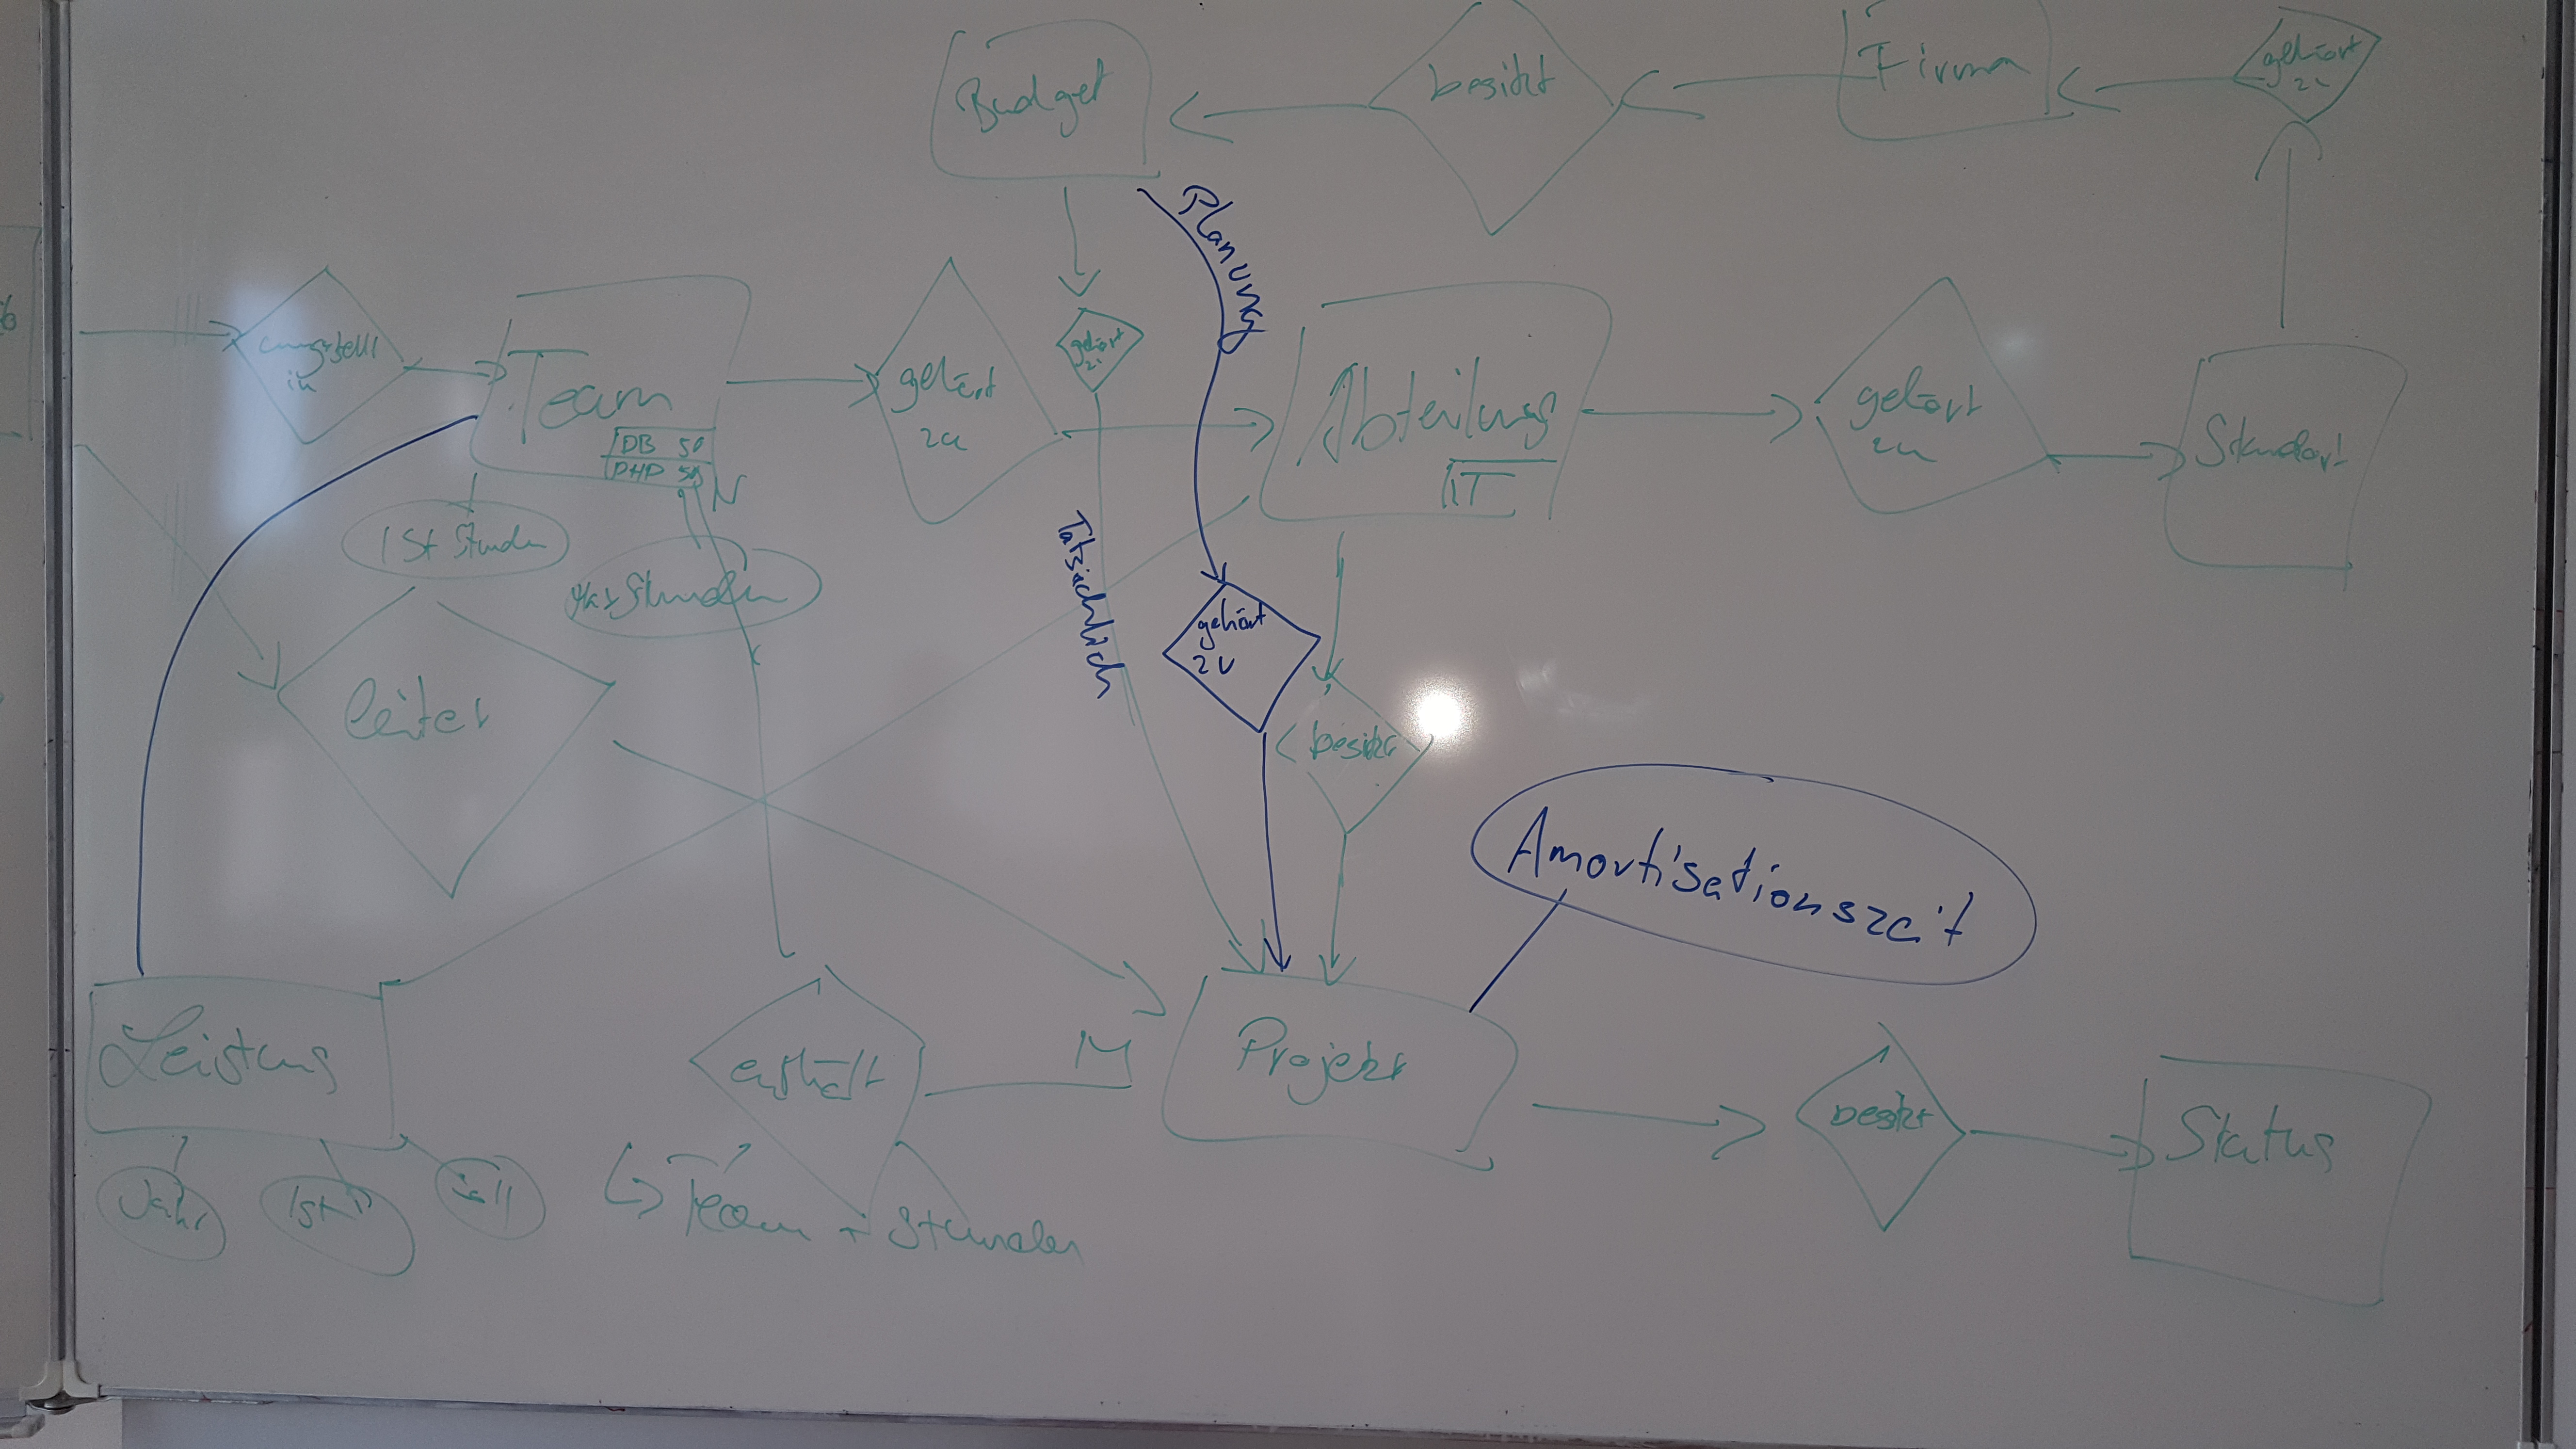 Budget
besitzt
Firma
gehört
zu
Planung
angestellt
in
Team
DB 50
PHP 50
N
gehört
zu
gehört
zu
Abteilung
IT
gehört
zu
Standort
Ist Stunden
Max Stunden
Tatsächlich
gehört
zu
leitet
besitzt
Amortisationszeit
Leistung
enthält
M
Projekt
besitzt
Status
Jahr
Ist
Soll
Team + Stunden